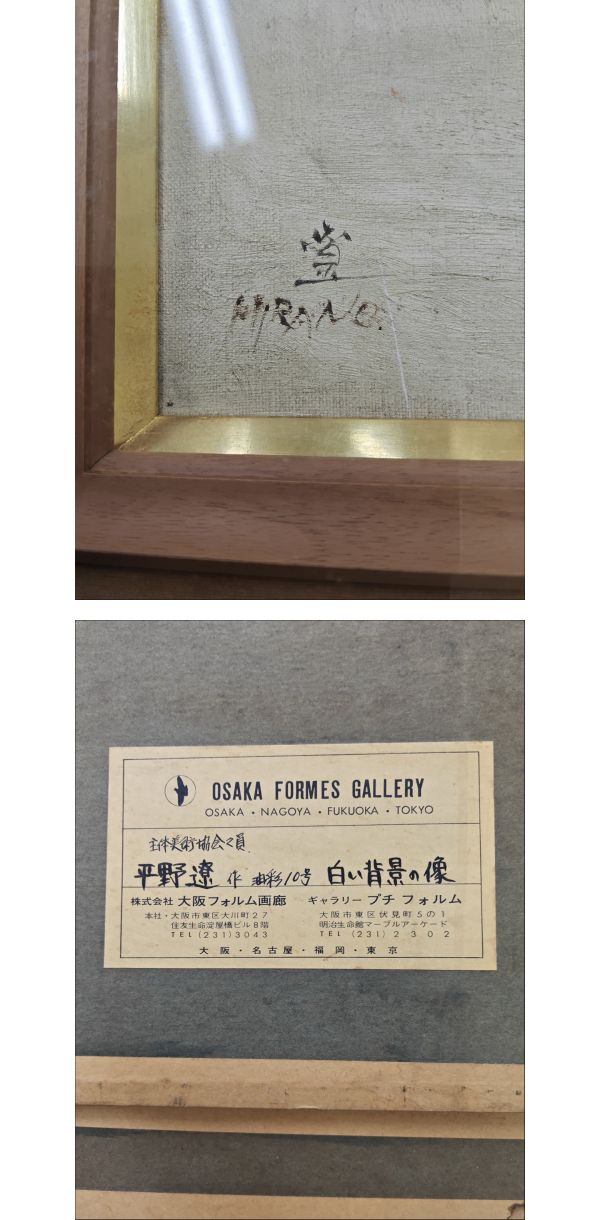 HIRANO.
OSAKA FORMES GALLERY
OSAKA・NAGOYA・FUKUOKA・TOKYO
主体美術協会々員
平野遼 作 油彩10号 白い背景の像
株式会社 大阪フォルム画廊 ギャラリー プチ フォルム
本社・大阪市東区大川町27 大阪市東区伏見町5の1
住友生命淀屋橋ビル8階 明治生命館マーブルアーケード
TEL (231)3043 TEL (231)2302
大阪・名古屋・福岡・東京